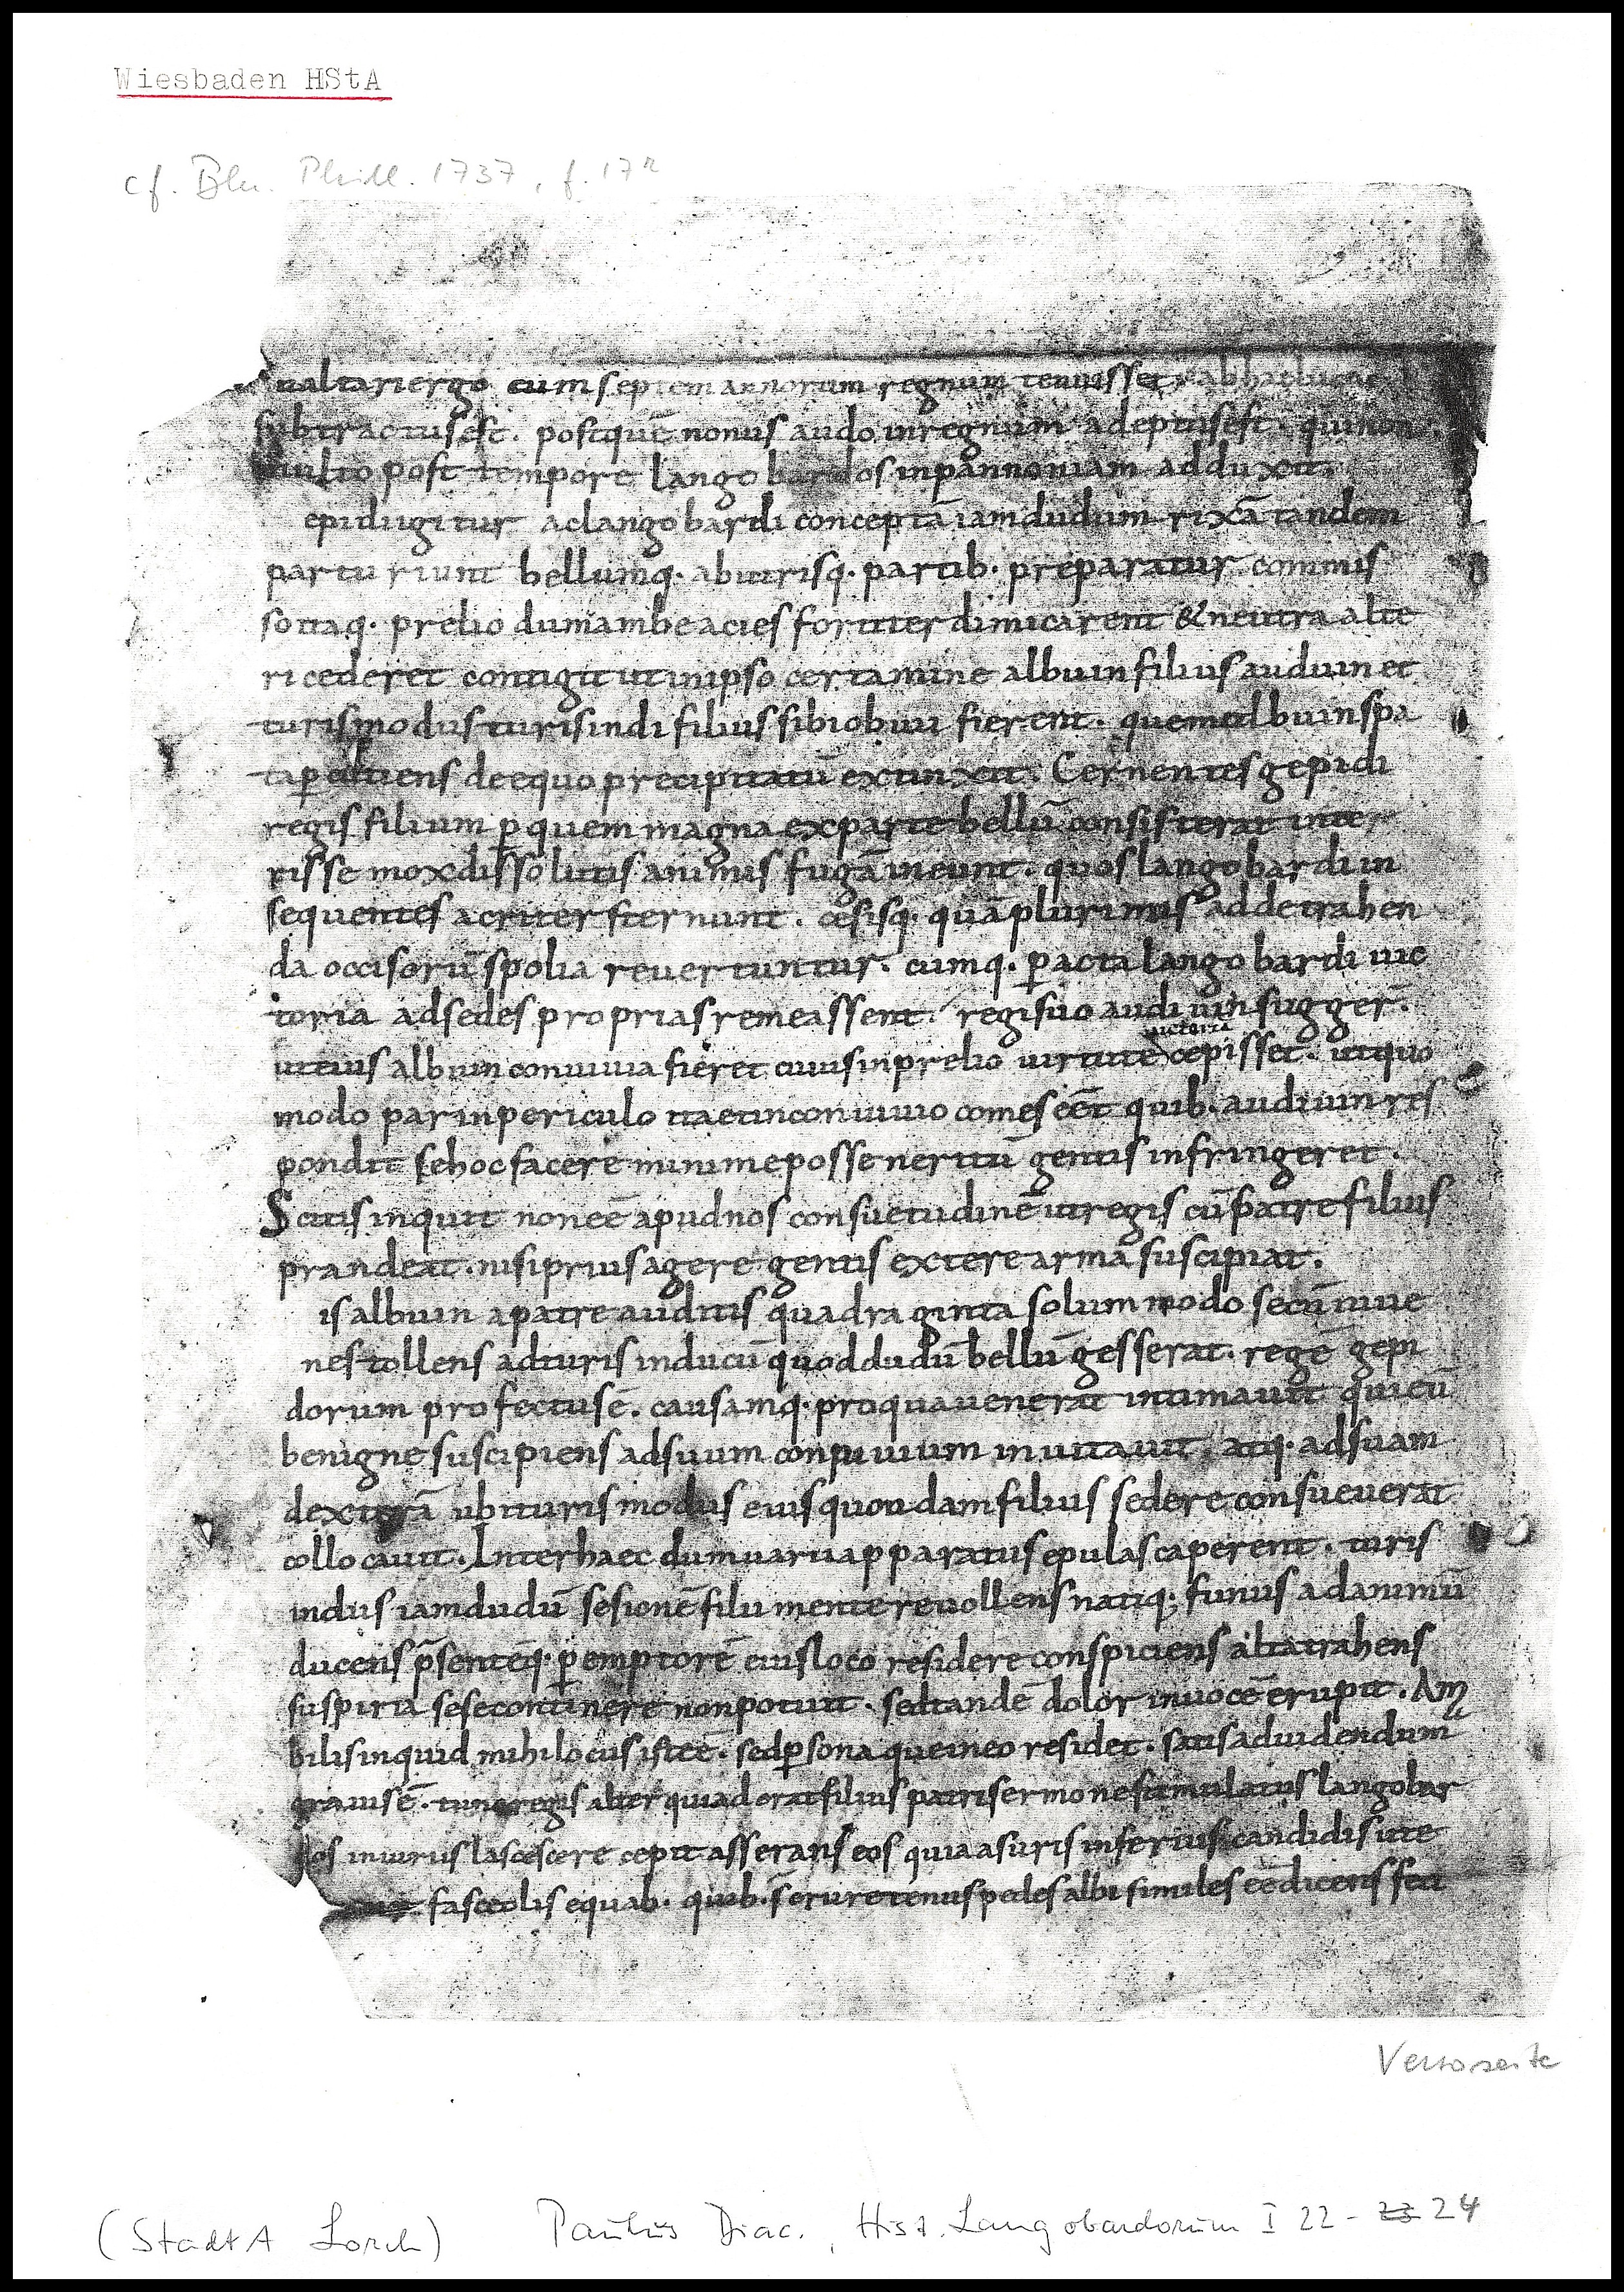 Wiesbaden HStA
cf. Bln. Phill. 1737, f. 17r
ualtari ergo cum septem annorum regnum tenuisset ab hac luce
subtractus est. post quē nonus audoin regnum adeptus est. qui non
multo post tempore langobardos in pannoniam adduxit.
epidi igitur ac langobardi conceptā iamdudum rixā tandem
parturiunt bellumq· ab utrisq· partib· preparatur commis
so itaq· prelio dum ambe acies fortiter dimicarent & neutra alte
ri cederet contigit ut in ipso certamine albuin filius auduin et
turismodus turisindi filius sibi obuii fierent. quem albuin spa
ta ꝑcutiens de equo precipitatū extinxit. Cernentes gepidi
regis filium ꝑ quem magna ex parte bellū consisterat inte
risse mox dissolutis animis fugā ineunt. quos langobardi in
sequentes acriter sternunt. cesisq· quā plurimis ad detrahen
da occisorū spolia reuertuntur. cumq· ꝑacta langobardi uic
toria ad sedes proprias remeassent. regi suo auduin sugger̄.
ut eius albuin conuiua fieret cuius in prelio uirtute uictoria cepisset. ut quo
modo par in periculo ita et in conuiuio comes eēt quib· auduin res
pondit se hoc facere minime posse ne ritū gentis infringeret.
Scitis inquit non eē apud nos consuetudinē ut regis cū patre filius
prandeat. nisi prius a gere gentis extere arma suscipiat.
is albuin a patre auditis quadraginta solummodo secū iuue
nes tollens ad turisindu cū quod dudū bellū gesserat. regē gepi
dorum profectus ē. causamq· pro qua uenerat intimauit qui eū
benigne suscipiens ad suum conuiuium inuitauit, atq· ad suam
dexterā ubi turismodus eius quondam filius sedere consueuerat
collocauit. Inter haec dum uarii apparatus epulas caperent. turis
indus iamdudū sesionē filii mente reuollens natiq; funus ad animū
ducens p̄sentēq· ꝑemptorē eius loco residere conspiciens alta trahens
suspiria sese continere non potuit. sed tandē dolor in uocē erupit. Am
bilis inquid mihi locus iste ē. sed ꝑsona que in eo residet. satis ad uidendum
grauis ē. tunc regis alter qui aderat filius patris sermone stimulatus langobar
dos iniuriis lascescere cepit asserans eos quia a suris inferius candidis ute
fasceolis equab· quib· crure tenus pedes albi similes eē dicens feti
Versoseite
(StadtA Lorch) Paulus Diac., Hist. Langobardorum I 22 - 23 24